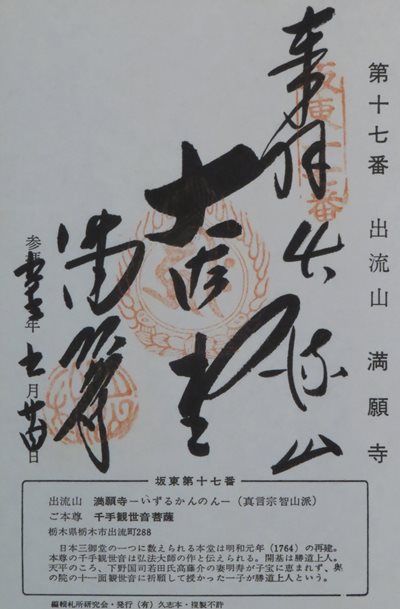 第十七番 出流山 満願寺
坂東十七番
奉拝 出流山
大悲殿
満願寺
参拝 年 十一月 廿四日
坂東第十七番
出流山 満願寺－いずるかんのん－（真言宗智山派）
ご本尊 千手観世音菩薩
栃木県栃木市出流町288
日本三御堂の一つに数えられる本堂は明和元年（1764）の再建。
本尊の千手観世音は弘法大師の作と伝えられる。開基は勝道上人。
天平のころ、下野国司若田氏高藤介の妻明寿が子宝に恵まれず、奥
の院の十一面観世音に祈願して授かった一子が勝道上人という。
編輯札所研究会・発行（有）久志本・複製不許